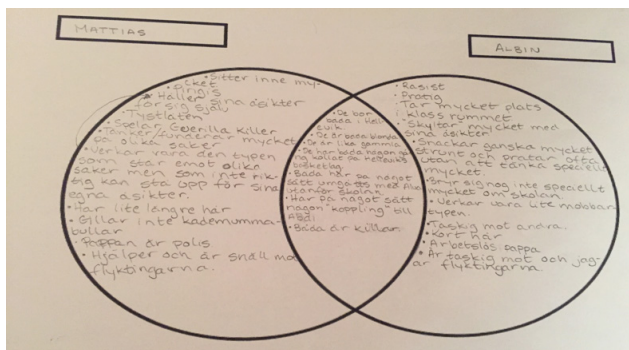 MATTIAS
ALBIN
• Sitter inne my-
cket
• Håller sina åsikter
för sig själv
• Tystlåten
• Spelar Guerilla Killer
• Tänker/funderar mycket
på olika saker
• Verkar vara den typen
som står emot olika
saker men som inte rik-
tig kan stå upp för sina
egna åsikter.
• Har lite längre hår
• Gillar inte kademumma-
bullar
• Pappan är polis
• Hjälper och är snäll mot
flyktingarna.
• De bor
båda i
• De är båda blonda
• De är lika gamla
• De har båda någon gå
ng kollat på
• Båda har på något
sätt umgåtts med
utanför skolan
• Har på något sätt
någon "koppling" till
Abdi
• Båda är killar.
• Rasist
• Pratig
• Tar mycket plats
i klassrummet
• "Skyltar" mycket med
sina åsikter
• Snackar ganska mycket
strunt och pratar ofta
utan att tänka speciellt
mycket.
• Bryr sig nog inte speciellt
mycket om skolan.
• Verkar vara lite mobbar
typen.
• Taskig mot andra.
• Kort hår
• Arbetslös pappa
• Är taskig mot och jag-
ar flyktingarna.